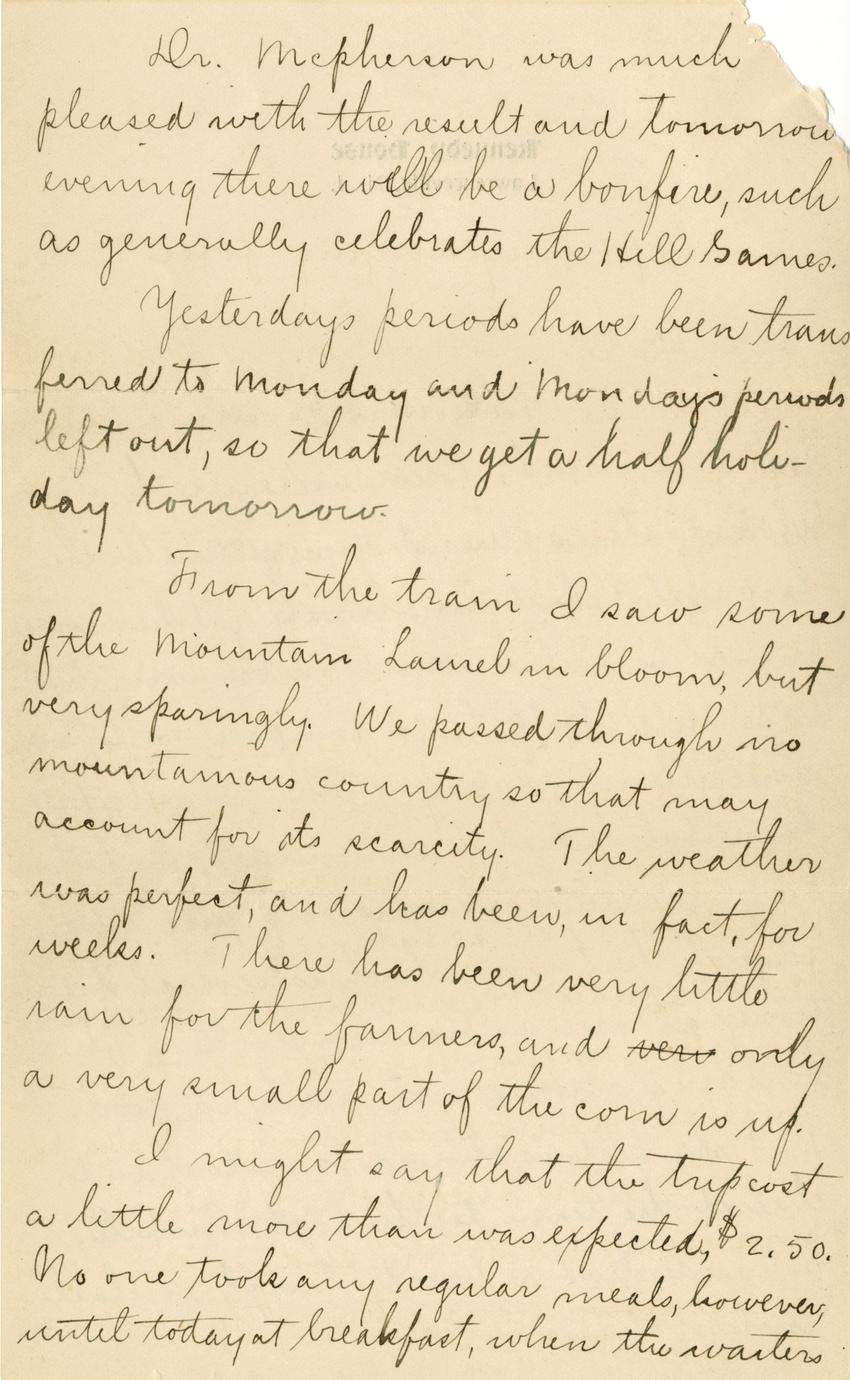 Dr. Mcpherson was much
pleased with the result and tomorrow
evening there will be a bonfire, such
as generally celebrates the Hill Games.
Yesterdays periods have been trans
ferred to Monday and Monday's periods
left out, so that we get a half holi-
day tomorrow.
From the train I saw some
of the Mountain Laurel in bloom, but
very sparingly. We passed through no
mountainous country so that may
account for its scarcity. The weather
was perfect, and has been, in fact, for
weeks. There has been very little
rain for the farmers, and very only
a very small part of the corn is up.
I might say that the trip cost
a little more than was expected, $2.50.
No one took any regular meals, however,
until today at breakfast, when the waiters